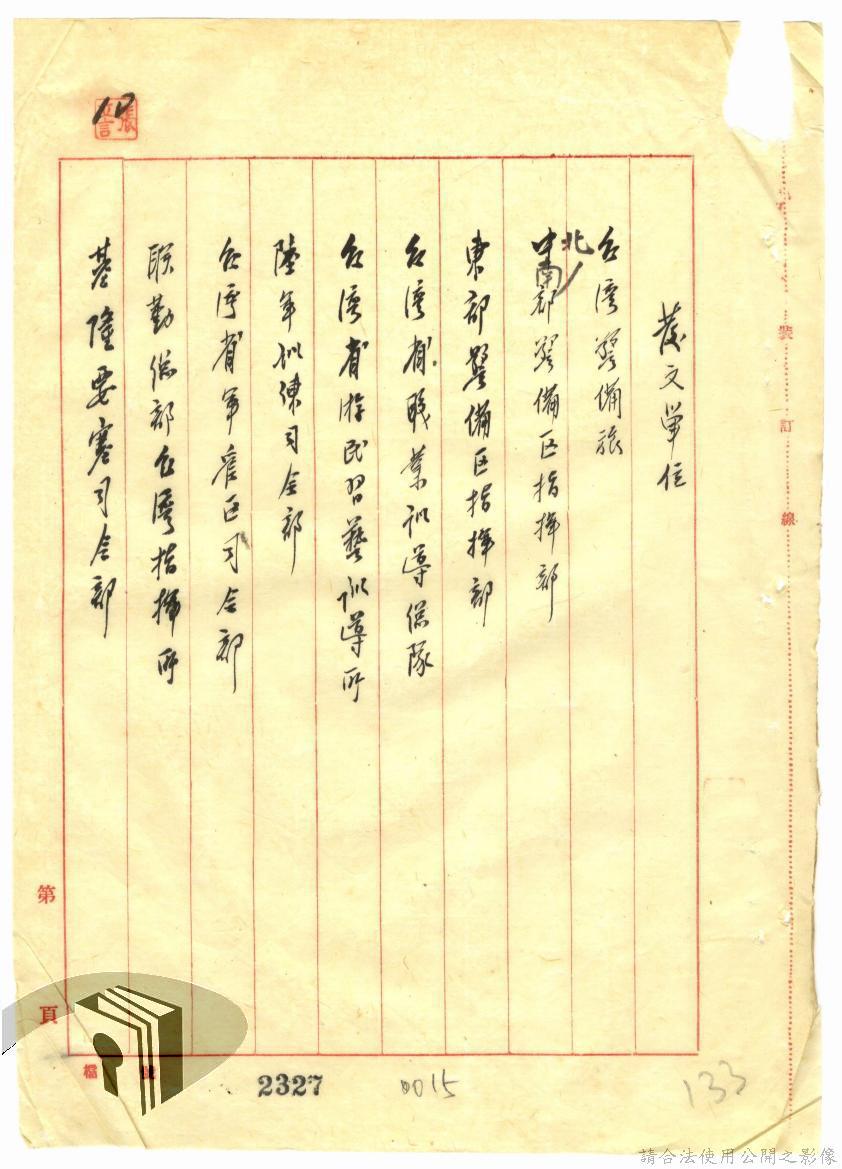 發文單位
台湾警備旅
北
中南部警備区指揮部
東部警備区指揮部
台湾省職業訓導總隊
台湾省游民習藝訓導所
陸軍訓練司令部
台湾省軍管区司令部
聯勤總部台湾指揮所
基隆要塞司令部
裝訂線
第頁
檔
2327
0015
133
請合法使用公開之影像